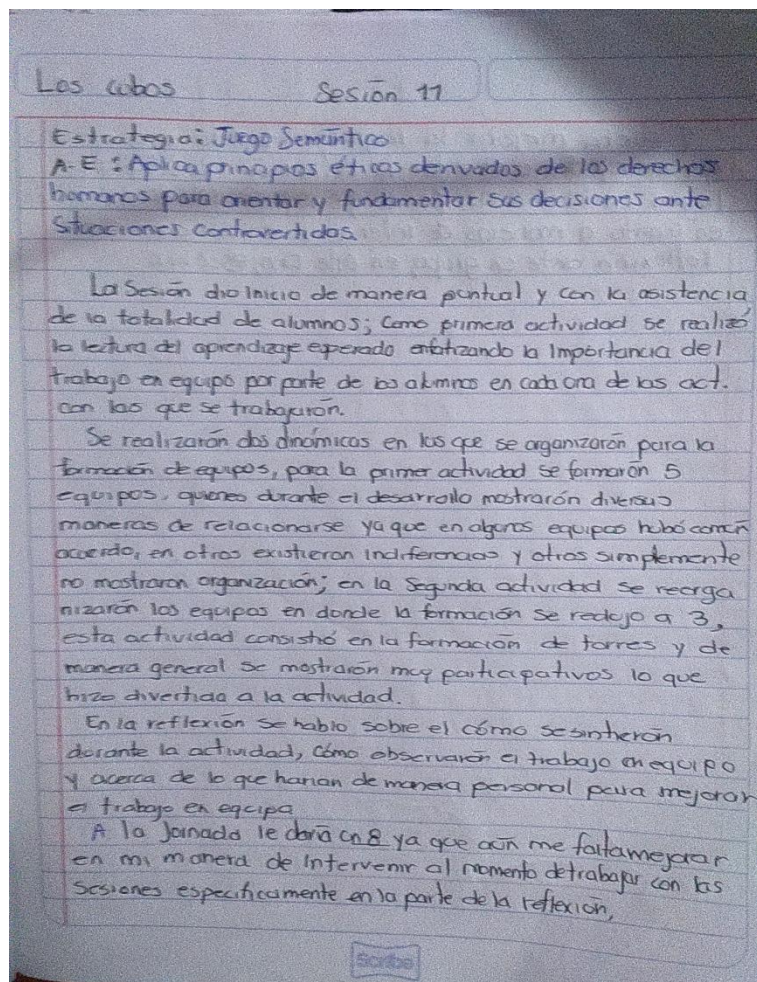 Los cubos Sesión 11
Estrategia: Juego Semántico
A-E: Aplica principios éticos derivados de los derechos
humanos para orientar y fundamentar sus decisiones ante
situaciones controvertidas.
La Sesión dio Inicio de manera puntual y con la asistencia
de la totalidad de alumnos; Como primera actividad se realizó
la lectura del aprendizaje esperado enfatizando la Importancia del
trabajo en equipo por parte de los alumnos en cada una de las act.
con las que se trabajarón.
Se realizarón dos dinámicas en las que se organizarón para la
formación de equipos, para la primer actividad se formarón 5
equipos, quienes durante el desarrollo mostrarón diversas
maneras de relacionarse ya que en algunos equipos hubó común
acuerdo, en otros existieron Indiferencias y otros simplemente
no mostraron organización; en la Segunda actividad se reorga
nizarón los equipos en donde la formación se redujo a 3,
esta actividad consistió en la formación de torres y de
manera general se mostrarón muy participativos lo que
hizo divertida a la actividad.
En la reflexión se hablo sobre el cómo se sintierón
durante la actividad, cómo observarón el trabajo en equipo
y acerca de lo que harían de manera personal para mejorar
el trabajo en equipo
A la Jornada le daría un 8 ya que aún me falta mejorar
en mi manera de Intervenir al momento de trabajar con las
Sesiones específicamente en la parte de la reflexión,
Scribe